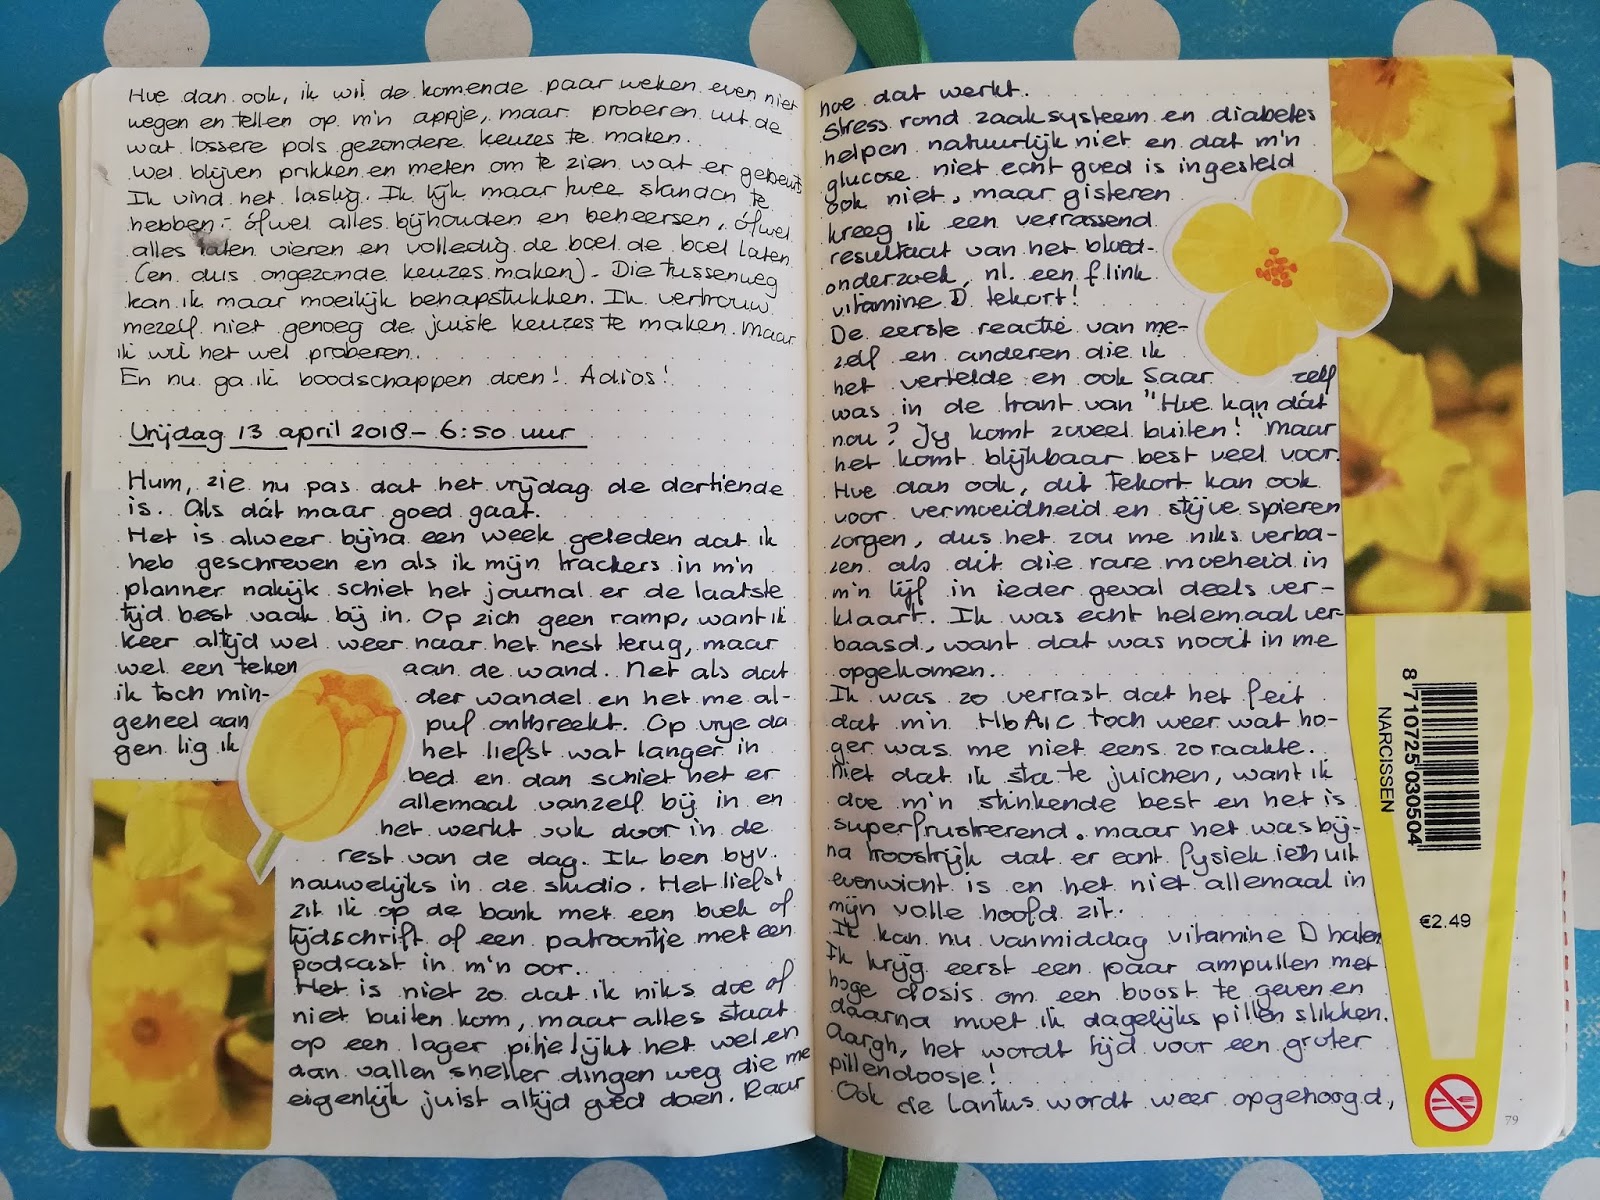 Hoe dan ook, ik wil de komende paar weken even niet
wegen en tellen op m'n appje, maar proberen uit de
wat lossere pols gezondere keuzes te maken.
Wel blijven prikken en meten om te zien wat er gebeurt.
Ik vind het lastig. Ik lijk maar twee standen te
hebben: ófwel alles bijhouden en beheersen, ófwel
alles laten vieren en volledig de boel de boel laten
(en dus ongezonde keuzes maken). Die tussenweg
kan ik maar moeilijk behapstukken. Ik vertrouw
mezelf niet genoeg de juiste keuzes te maken. Maar
ik wil het wel proberen.
En nu ga ik boodschappen doen! Adios!
Vrijdag 13 april 2018 - 6:50 uur
Hum, zie nu pas dat het vrijdag de dertiende
is. Als dát maar goed gaat.
Het is alweer bijna een week geleden dat ik
heb geschreven en als ik mijn trackers in m'n
planner nakijk schiet het journal er de laatste
tijd best vaak bij in. Op zich geen ramp, want ik
keer altijd wel weer naar het nest terug, maar
wel een teken aan de wand. Net als dat
ik toch min- der wandel en het me al-
geheel aan puf ontbreekt. Op vrije da
gen lig ik het liefst wat langer in
bed en dan schiet het er
allemaal vanzelf bij in en
het werkt ook door in de
rest van de dag. Ik ben bijv.
nauwelijks in de studio. Het liefst
zit ik op de bank met een boek of
tijdschrift of een patroontje met een
podcast in m'n oor.
Het is niet zo dat ik niks doe of
niet buiten kom, maar alles staat
op een lager pitje lijkt het wel en
dan vallen sneller dingen weg die me
eigenlijk juist altijd goed doen. Raar
hoe dat werkt.
Stress rond zaaksysteem en diabetes
helpen natuurlijk niet en dat m'n
glucose niet echt goed is ingesteld
ook niet, maar gisteren
kreeg ik een verrassend
resultaat van het bloed-
onderzoek, nl. een flink
vitamine D tekort!
De eerste reactie van me-
zelf en anderen die ik
het vertelde en ook Saar zelf
was in de trant van "Hoe kan dát
nou? Jij komt zoveel buiten!" Maar
het komt blijkbaar best veel voor.
Hoe dan ook, dit tekort kan ook
voor vermoeidheid en stijve spieren
zorgen, dus het zou me niks verba-
zen als dit die rare moeheid in
m'n lijf in ieder geval deels ver-
klaart. Ik was echt helemaal ver-
baasd, want dat was nooit in me
opgekomen.
Ik was zo verrast dat het feit
dat m'n HbA1C toch weer wat ho-
ger was me niet eens zo raakte.
Niet dat ik sta te juichen, want ik
doe m'n stinkende best en het is
superfrustrerend. Maar het was bij-
na troostrijk dat er echt fysiek iets uit
evenwicht is en het niet allemaal in
mijn volle hoofd zit.
Ik kan nu vanmiddag vitamine D halen
Ik krijg eerst een paar ampullen met
hoge dosis om een boost te geven en
daarna moet ik dagelijks pillen slikken.
Aargh, het wordt tijd voor een groter
pillendoosje!
Ook de Lantus wordt weer opgehoogd,
8 710725 030504
NARCISSEN
€2.49
79